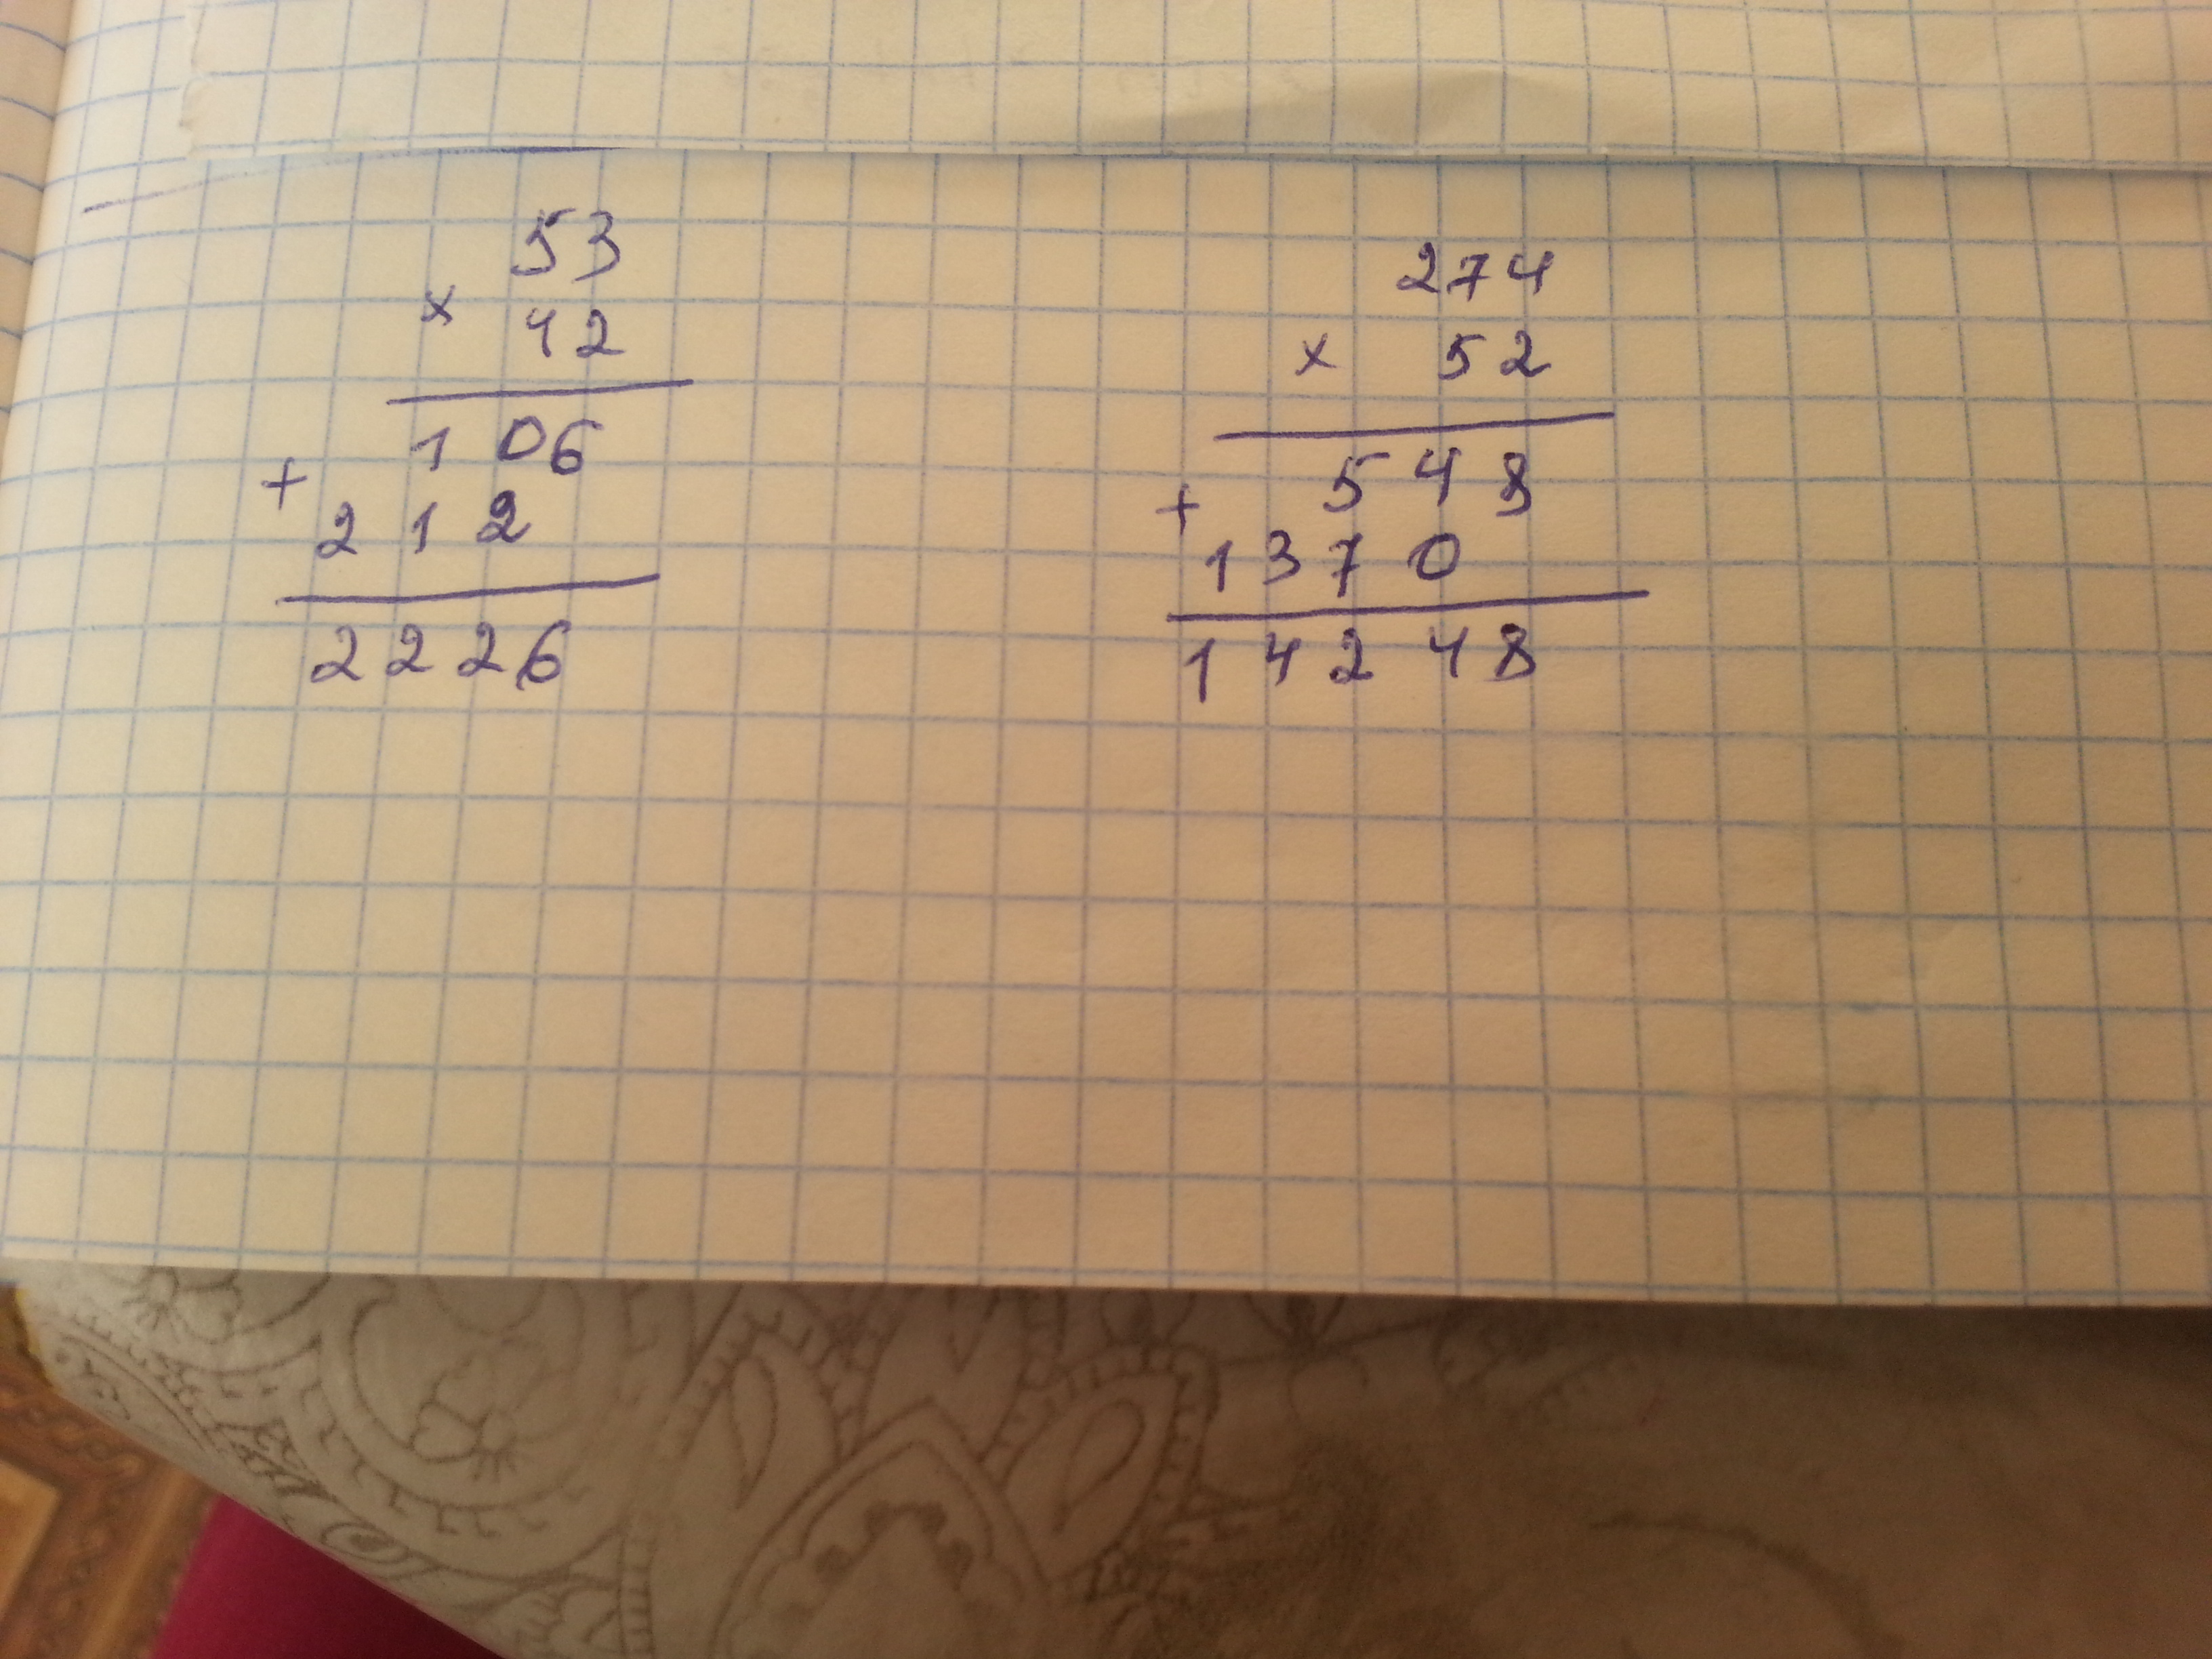 53
x 42
106
+ 212
2226
274
x 52
548
+ 1370
14248